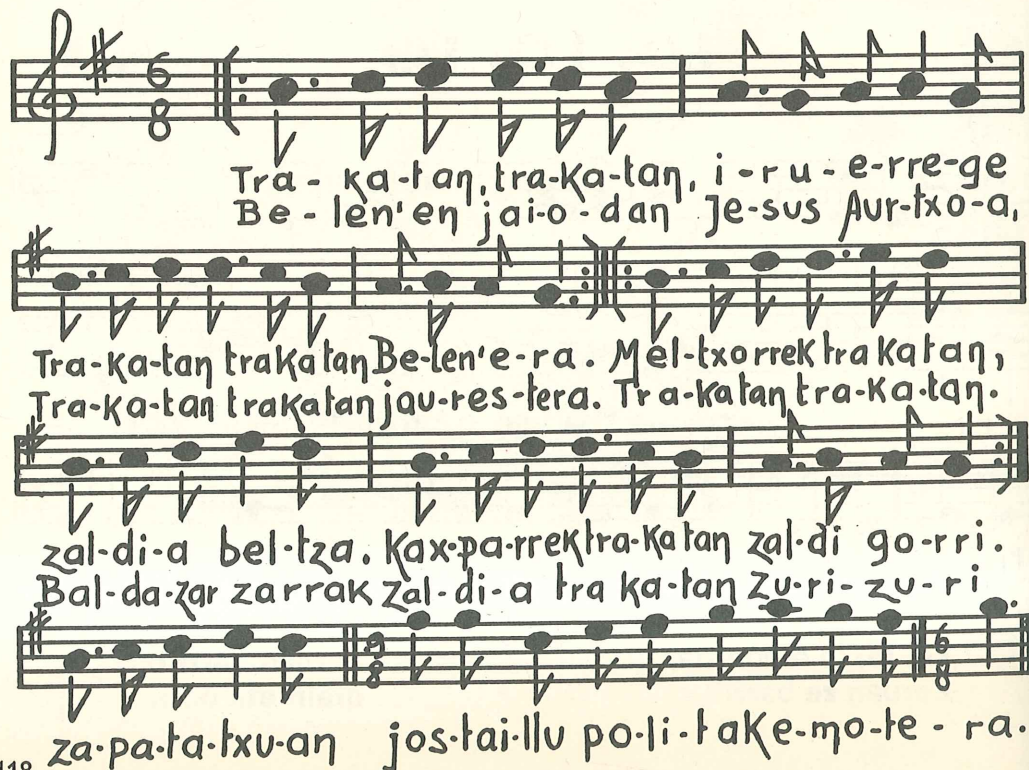 6
8
Tra-ka-tan, tra-ka-tan, i-ru-e-rre-ge
Be-len'en jai-o-dan Je-sus Aur-txo-a,
Tra-ka-tan trakatan Be-len'e-ra. Mel-txorrek trakatan,
Tra-ka-tan trakatan jau-res-tera. Tra-katan tra-ka-tan.
zal-di-a bel-tza. Kax-pa-rrek tra-ka tan zal-di go-rri.
Bal-da-zar zarrak zal-di-a tra ka-tan zu-ri-zu-ri
9
8
6
8
za-pa-ta-txu-an jos-tai-llu po-li-takE-mo-te-ra.
118